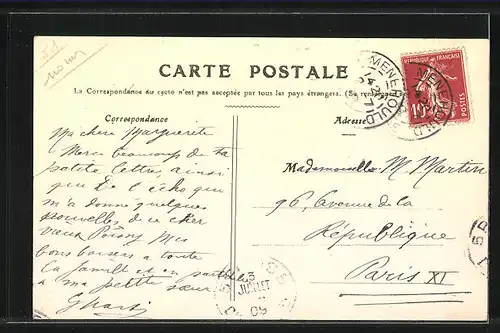 CARTE POSTALE
La Correspondance au recto n'est pas acceptée par tous les pays étrangers. (Se renseigner
Correspondance
Adresse
RÉPUBLIQUE FRANÇAISE
10
POSTES
MENEHOULD
MENEHOULD
Ma chère Marguerite
Merci beaucoup de ta
petite lettre, ainsi
que de l'écho qui
m'a donné quelques
nouvelles de ce cher
vieux Poissy. Mes
bons baisers à toute
la famille et en
à ma petite sœur
Mademoiselle M Martin
96, Avenue de la
République
Paris XI
JUILLET
09